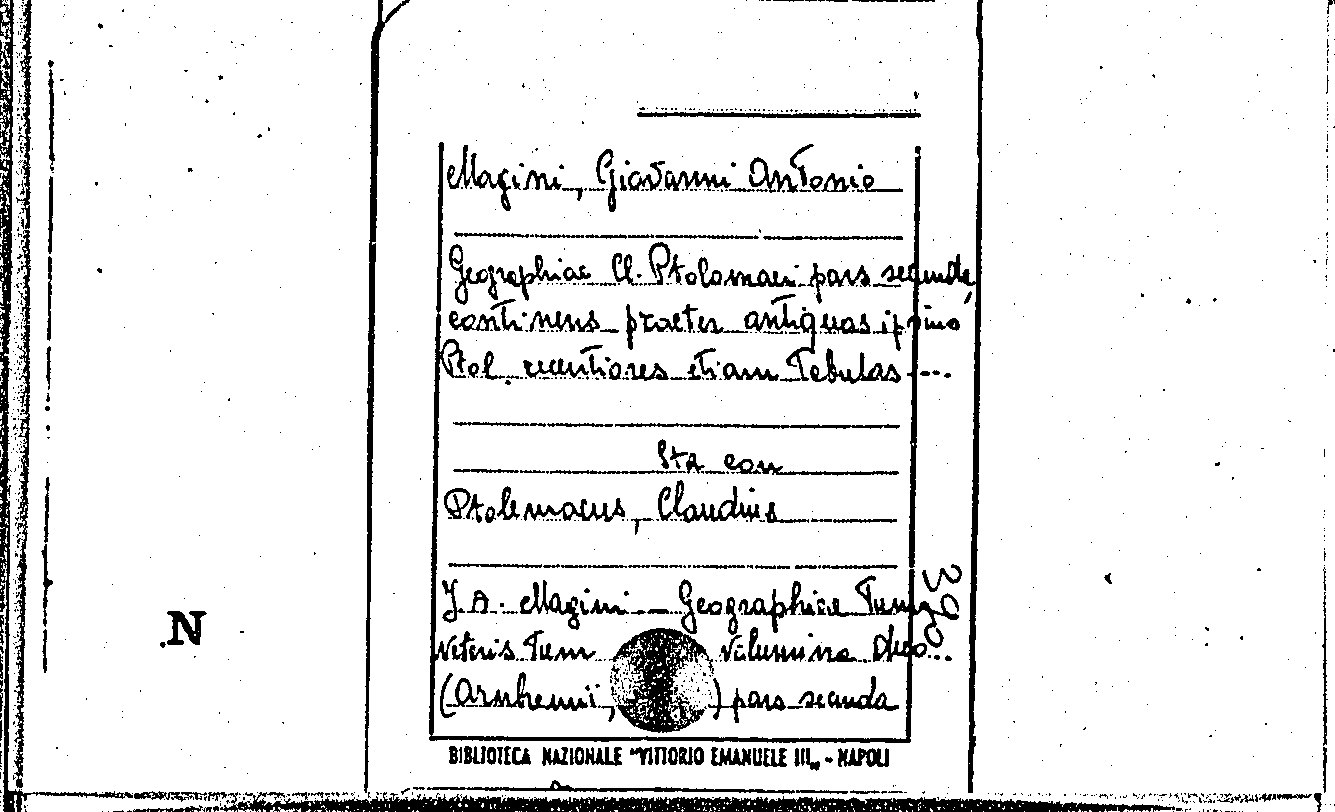 Magini, Giovanni Antonio
Geographiae Cl. Ptolomaei pars secunda,
continens praeter antiquas ipsius
Ptol. recentiores etiam Tabulas ...
Sta con
Ptolemaeus, Claudius
J. A. Magini - Geographiae Tum
Veteris Tum Volumina duo...
(Arnhemii, ) pars secunda
390
N
BIBLIOTECA NAZIONALE "VITTORIO EMANUELE III„ - NAPOLI